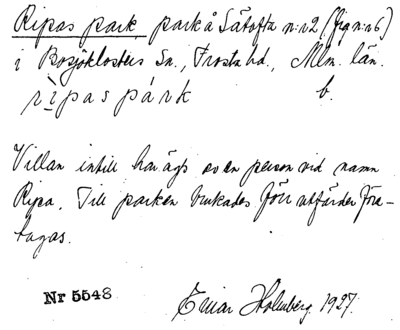 Ripas park park å Sätofta n:r 2 (fig n:r 6)
i Bosjöklosters Sn., Frosta hd., Mlm. län.
rìpas párk b.
Villan intill har ägts av en person vid namn
Ripa. Till parken brukades förr utfärder före-
tagas.
Nr 5548 Einar Holmberg 1927.